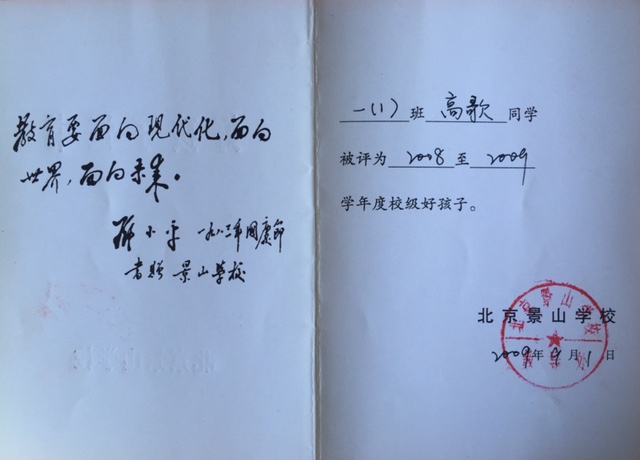 教育要面向现代化，面向
世界，面向未来。
邓小平 一九八三年国庆节
书赠 景山学校
一（1）班 高歌 同学
被评为 2008 至 2009
学年度校级好孩子。
北京景山学校
2009年6月1日
北京景山学校